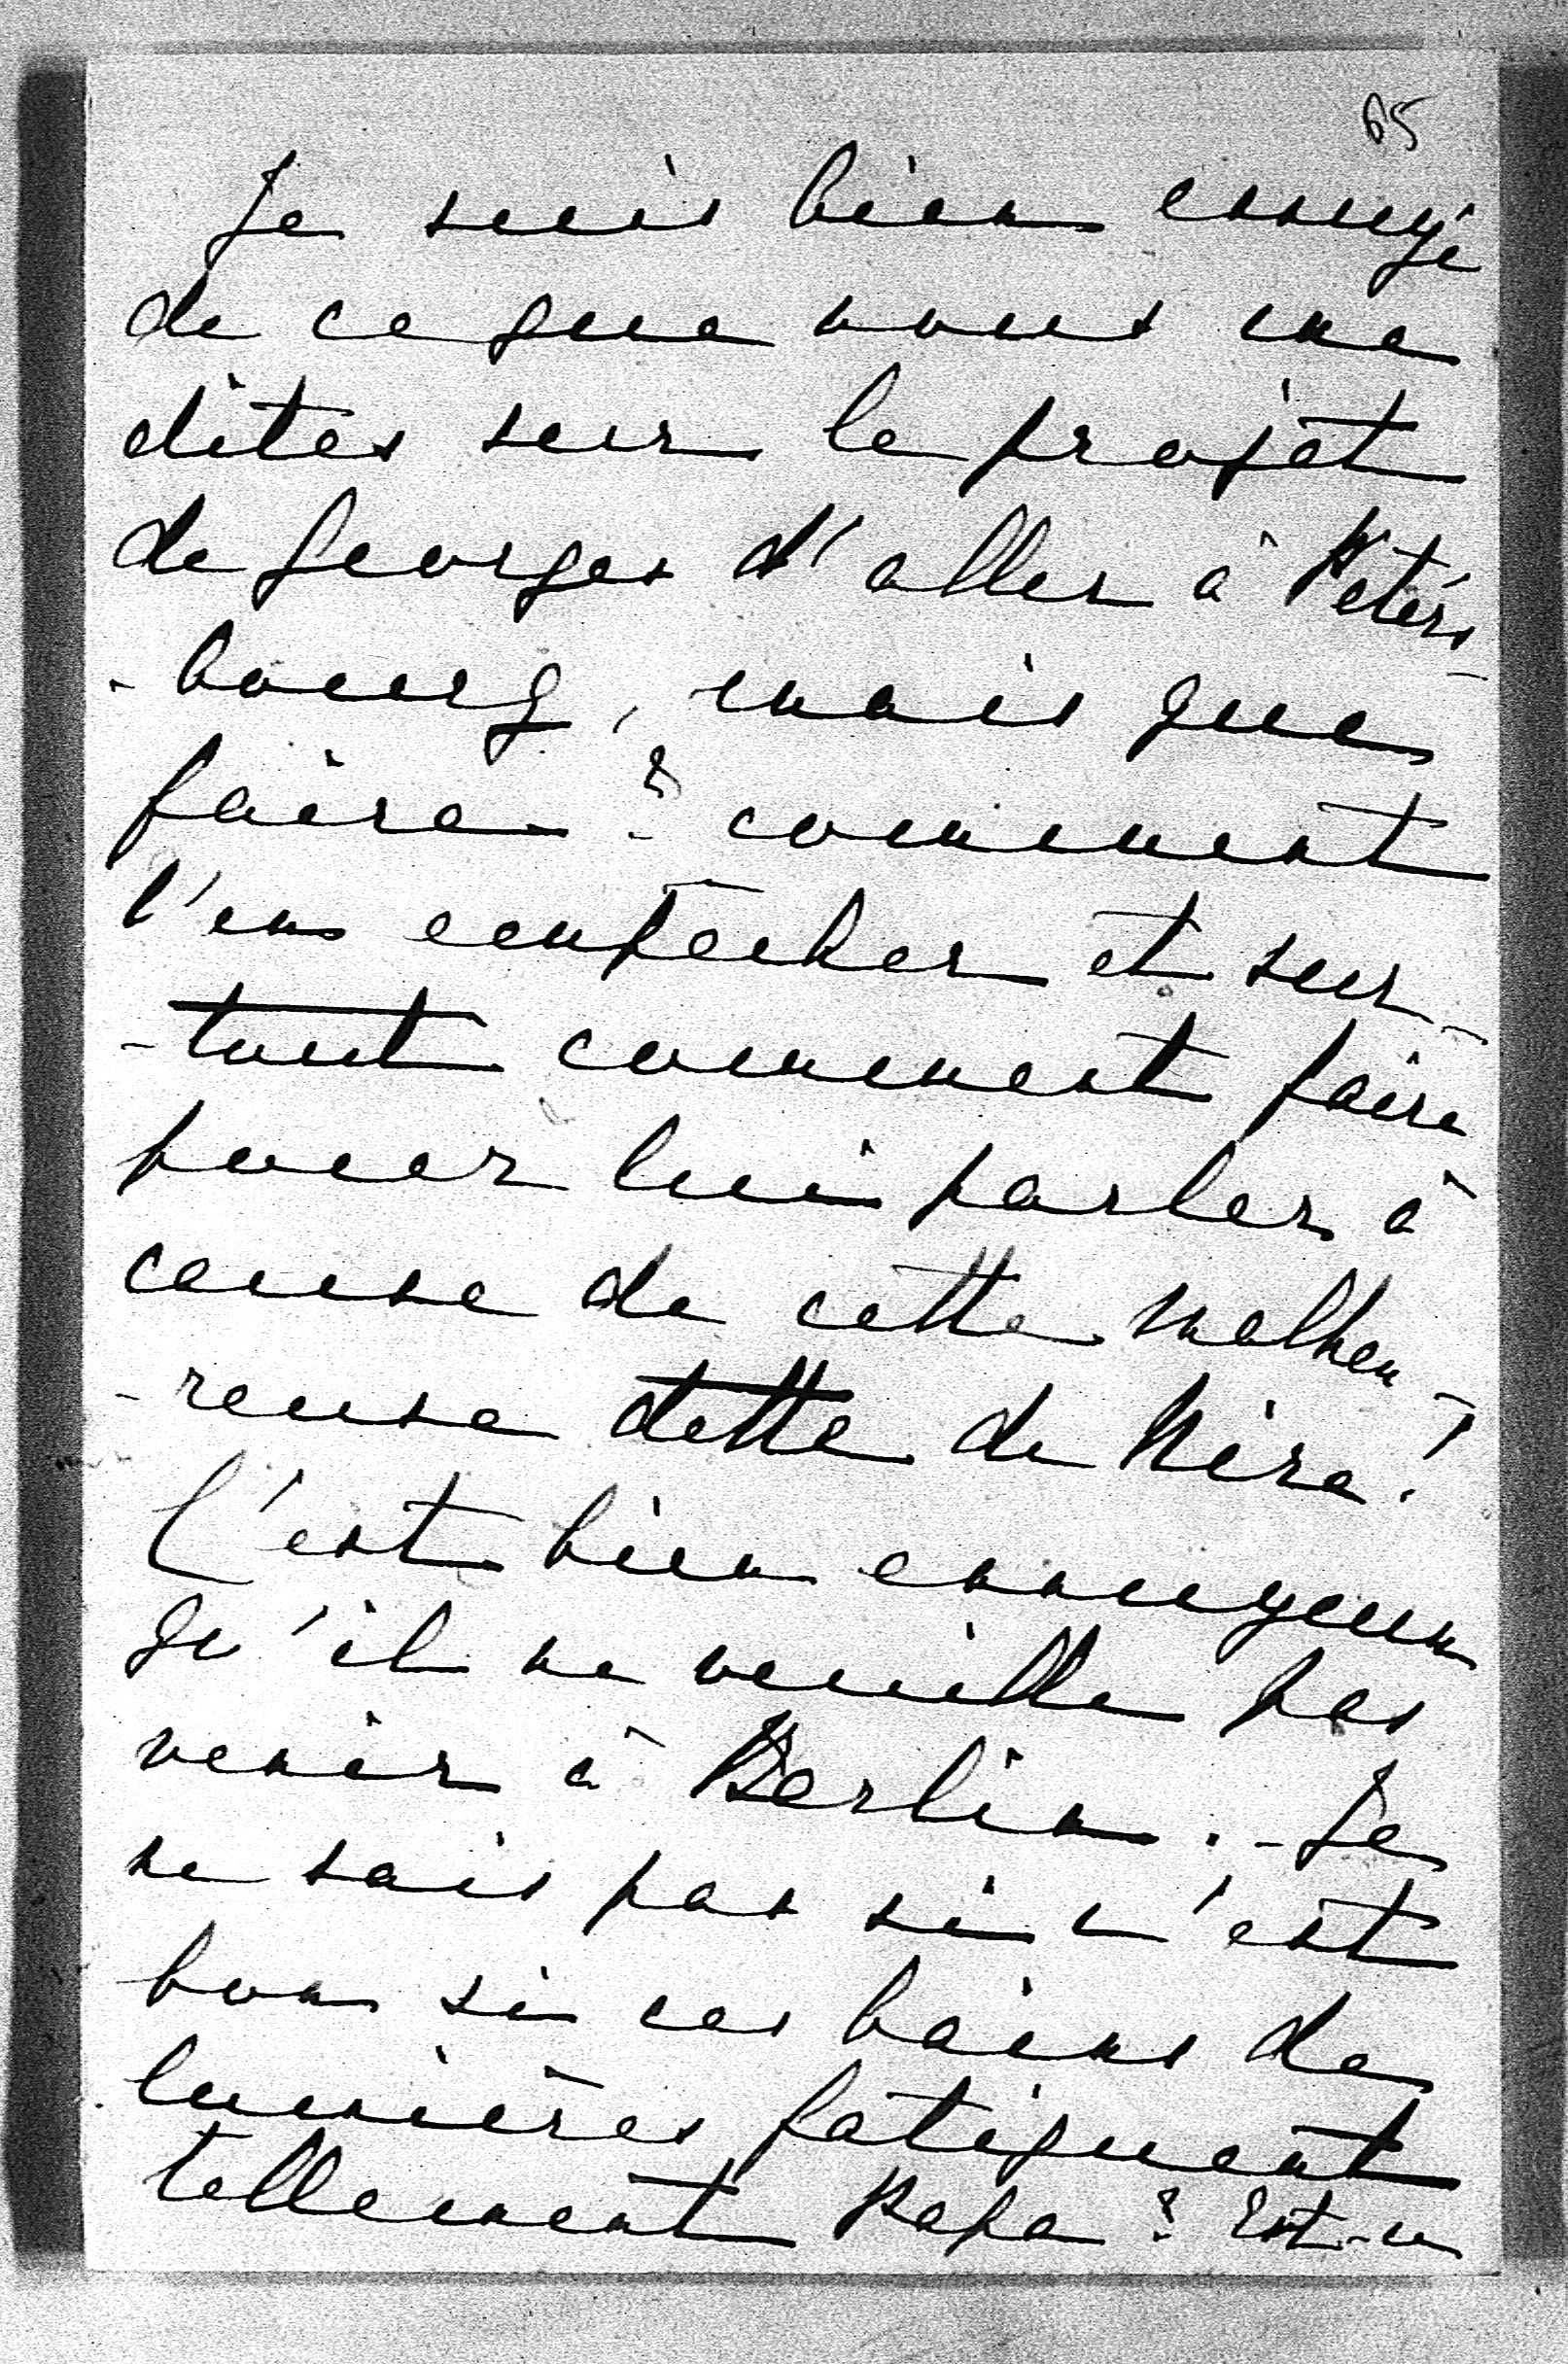 65
Je suis bien ennuyé
de ce que vous me
dites sur le projet
de Georges d'aller à Péters
-bourg, mais que
faire ? comment
l'en empêcher et sur-
-tout comment faire
pour lui parler à
cause de cette malheu-
-reuse dette de Mère !
C'est bien ennuyeux
qu'il ne veuille pas
venir à Berlin. - Je
ne sais pas si c'est
bon si ces bains de
lumières fatiguent
tellement Papa ? Est-ce